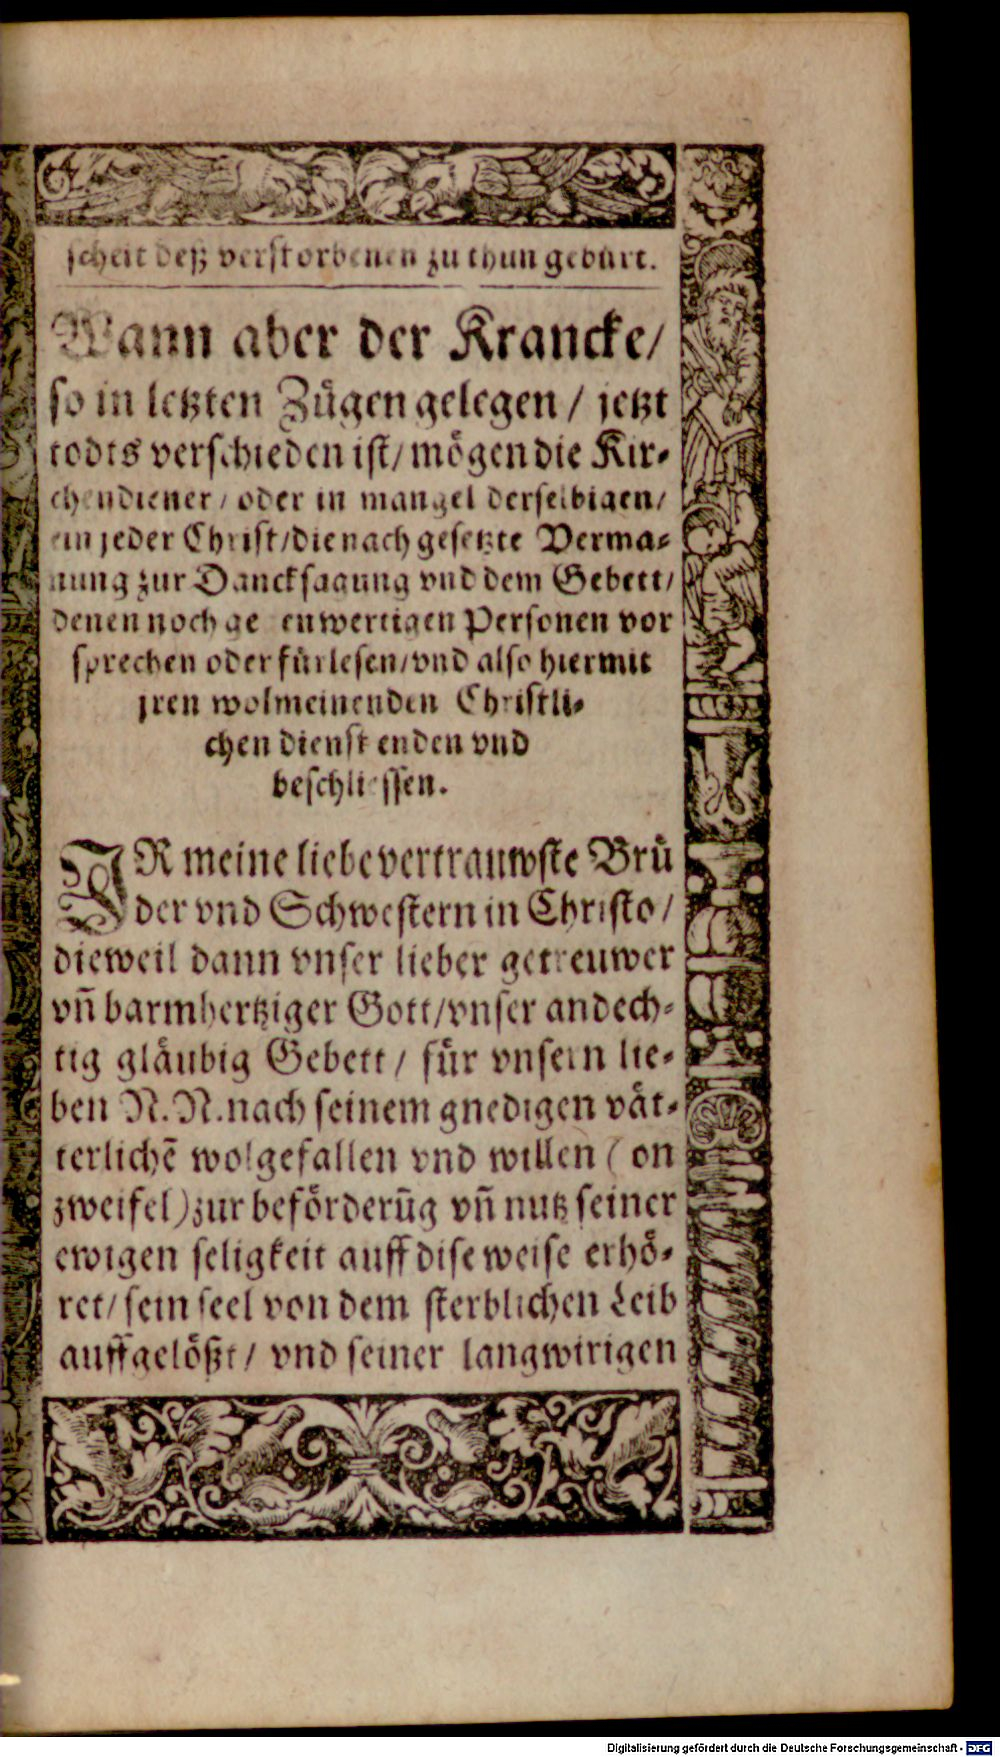 scheit deß verstorbenen zu thun gebürt.
Wann aber der Krancke/
so in letzten Zügen gelegen / jetzt
todts verschieden ist/ mögen die Kir-
chendiener / oder in mangel derselbigen/
ein jeder Christ/die nach gesetzte Verma-
nung zur Dancksagung vnd dem Gebett/
denen noch ge enwertigen Personen vor
sprechen oder fürlesen/vnd also hiermit
jren wolmeinenden Christli-
chen dienst enden vnd
beschliessen.
IR meine liebe vertrauwste Brü
der vnd Schwestern in Christo/
dieweil dann vnser lieber getreuwer
vñ barmhertziger Gott/vnser andech-
tig gläubig Gebett / für vnsern lie-
ben N. N. nach seinem gnedigen vät-
terlichẽ wolgefallen vnd willen ( on
zweifel) zur beförderũg vñ nutz seiner
ewigen seligkeit auff dise weise erhö-
ret/ sein seel von dem sterblichen Leib
auffgelößt/ vnd seiner langwirigen
Digitalisierung gefördert durch die Deutsche Forschungsgemeinschaft - DFG